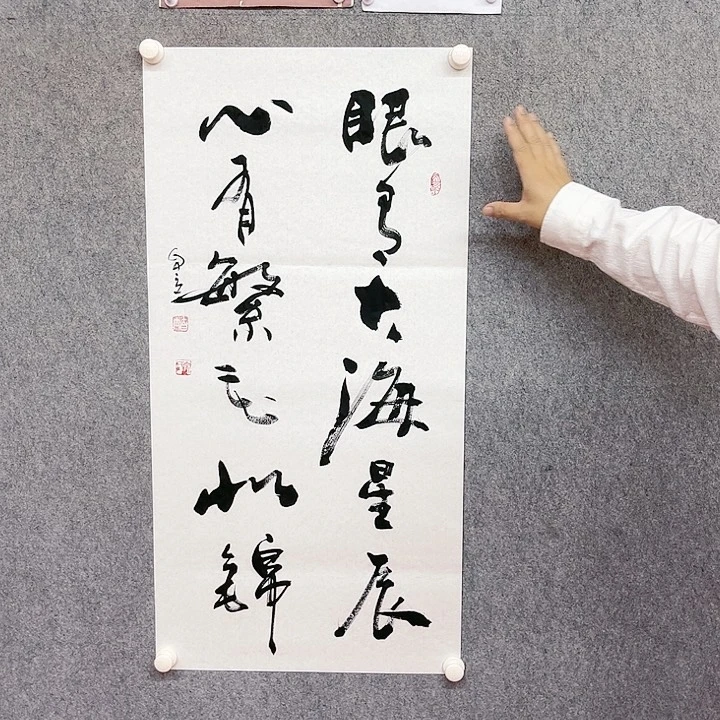 眼有大海星辰
心有繁花似锦